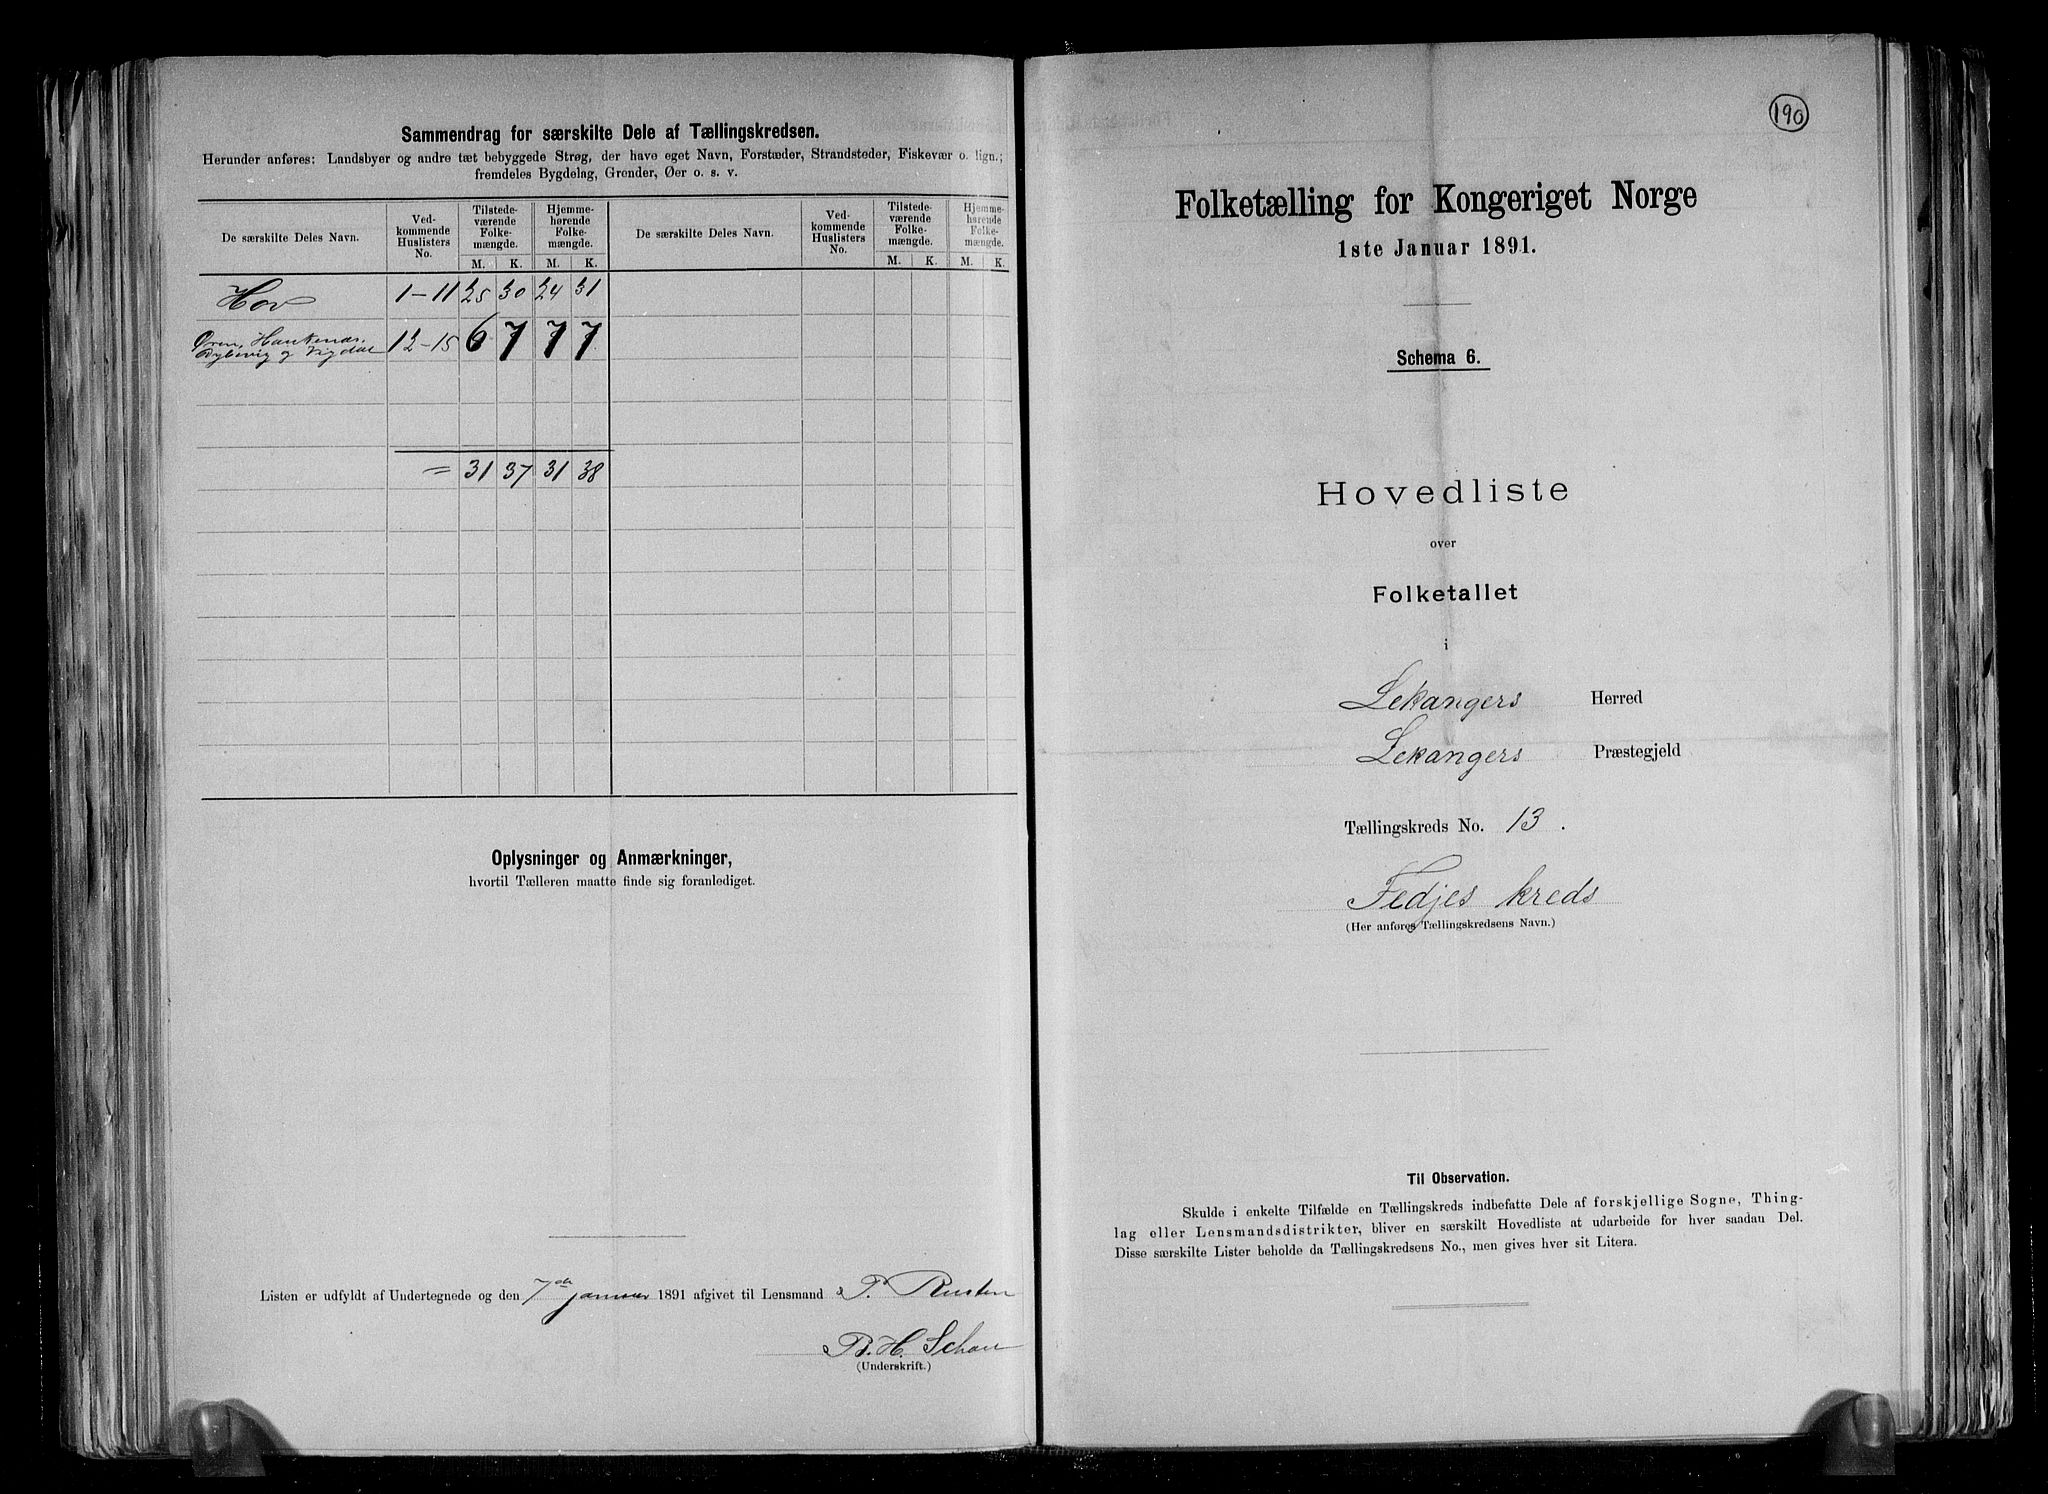 Sammendrag for særskilte Dele af Tællingskredsen.
Herunder anføres: Landsbyer og andre tæt bebyggede Strøg, der have eget Navn, Forstæder, Strandsteder, Fiskevær o. lign.;
fremdeles Bygdelag, Grender, Øer o. s. v.
De særskilte Deles Navn. Ved-kommende Huslisters No. Tilstede-værende Folke-mængde. Hjemme-hørende Folke-mængde. De særskilte Deles Navn. Ved-kommende Huslisters No. Tilstede-værende Folke-mængde. Hjemme-hørende Folke-mængde.
M. K. M. K. M. K. M. K.
Hov 1-11 25 30 24 31
Øren, Haukenæs,
Dybevig og Vigdal 12-15 6 7 7 7
= 31 37 31 38
Oplysninger og Anmærkninger,
hvortil Tælleren maatte finde sig foranlediget.
Listen er udfyldt af Undertegnede og den 7de januar 1891 afgivet til Lensmand P. Rusten
B. H. Schau
(Underskrift.)
190
Folketælling for Kongeriget Norge
1ste Januar 1891.
Schema 6.
Hovedliste
over
Folketallet
i
Lekangers Herred
Lekangers Præstegjeld
Tællingskreds No. 13.
Fedjes kreds
(Her anføres Tællingskredsens Navn.)
Til Observation.
Skulde i enkelte Tilfælde en Tællingskreds indbefatte Dele af forskjellige Sogne, Thing-
lag eller Lensmandsdistrikter, bliver en særskilt Hovedliste at udarbeide for hver saadan Del.
Disse særskilte Lister beholde da Tællingskredsens No., men gives hver sit Litera.